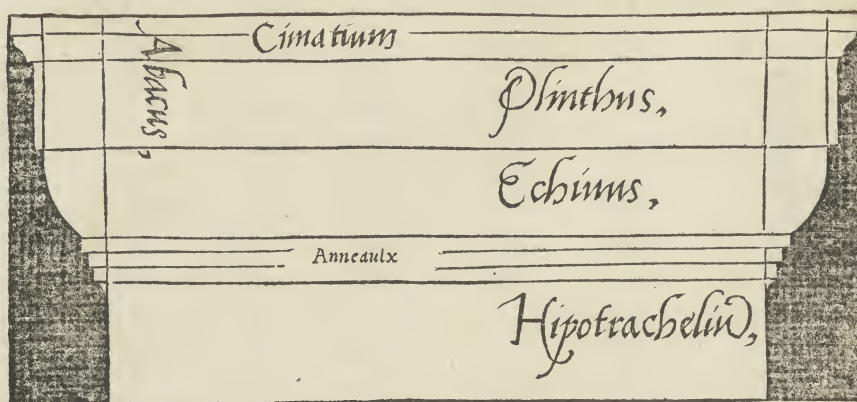 Cimatium
Abacus,
Plinthus,
Echinus,
Anneaulx
Hipotracheliũ,